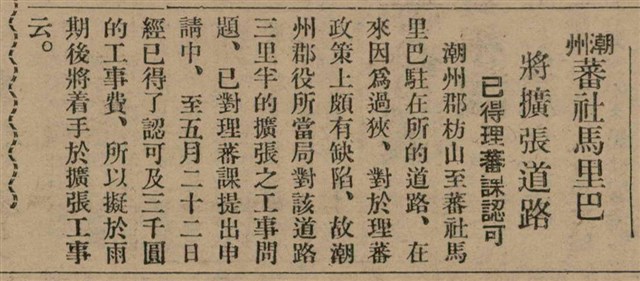 潮州蕃社馬里巴
將擴張道路
已得理蕃課認可
潮州郡枋山至蕃社馬
里巴駐在所的道路、在
來因爲過狹、對於理蕃
政策上頗有缺陷、故潮
州郡役所當局對該道路
三里半的擴張之工事問
題、已對理蕃課提出申
請中、至五月二十二日
經已得了認可及三千圓
的工事費、所以擬於雨
期後將着手於擴張工事
云。